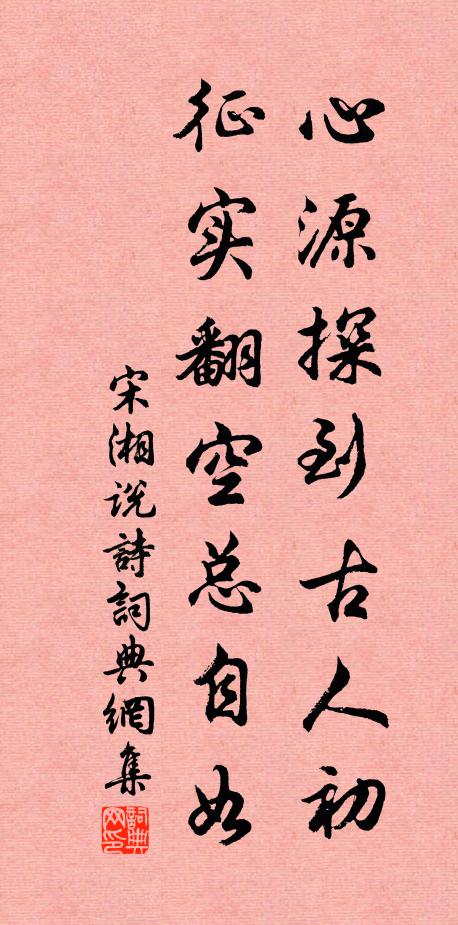 心源探到古人初
征实翻空总自如
宋湘说詩詞典網集
詞典网印